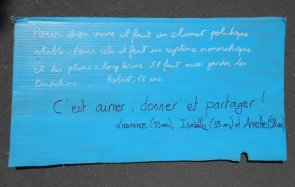 Pour bien vivre il faut un climat politique
stable. Pour cela il faut un système monarchique
et des plans à long terme. Il faut aussi garder les
traditions. Robert, 12 ans.
C'est aimer, donner et partager !
Laurence (55 ans), Isabelle (55 ans) et Annette (51 ans)